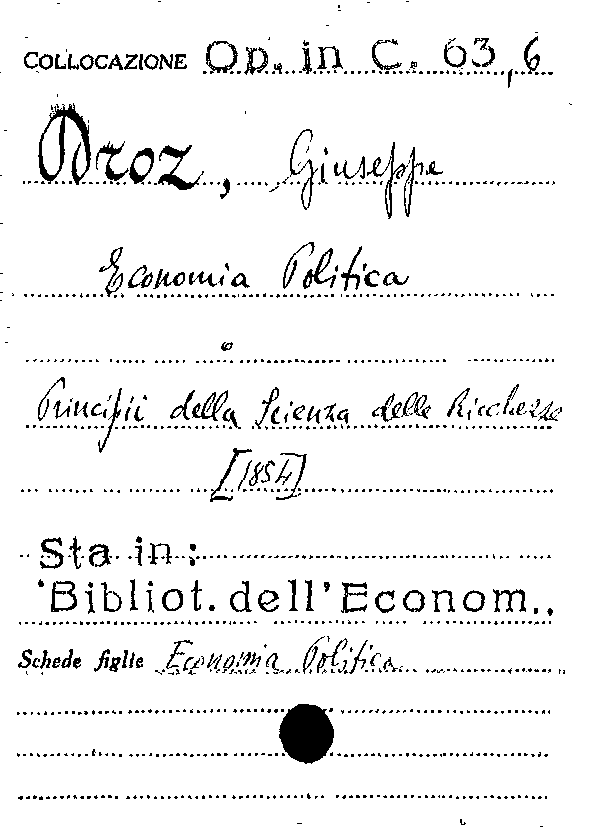 COLLOCAZIONE Op. in C. 63,6
Droz, Giuseppe
Economia Politica
o
Principii della Scienza delle Ricchezze
[1854]
Sta in:
'Bibliot. dell' Econom.,
Schede figlie Economia Politica